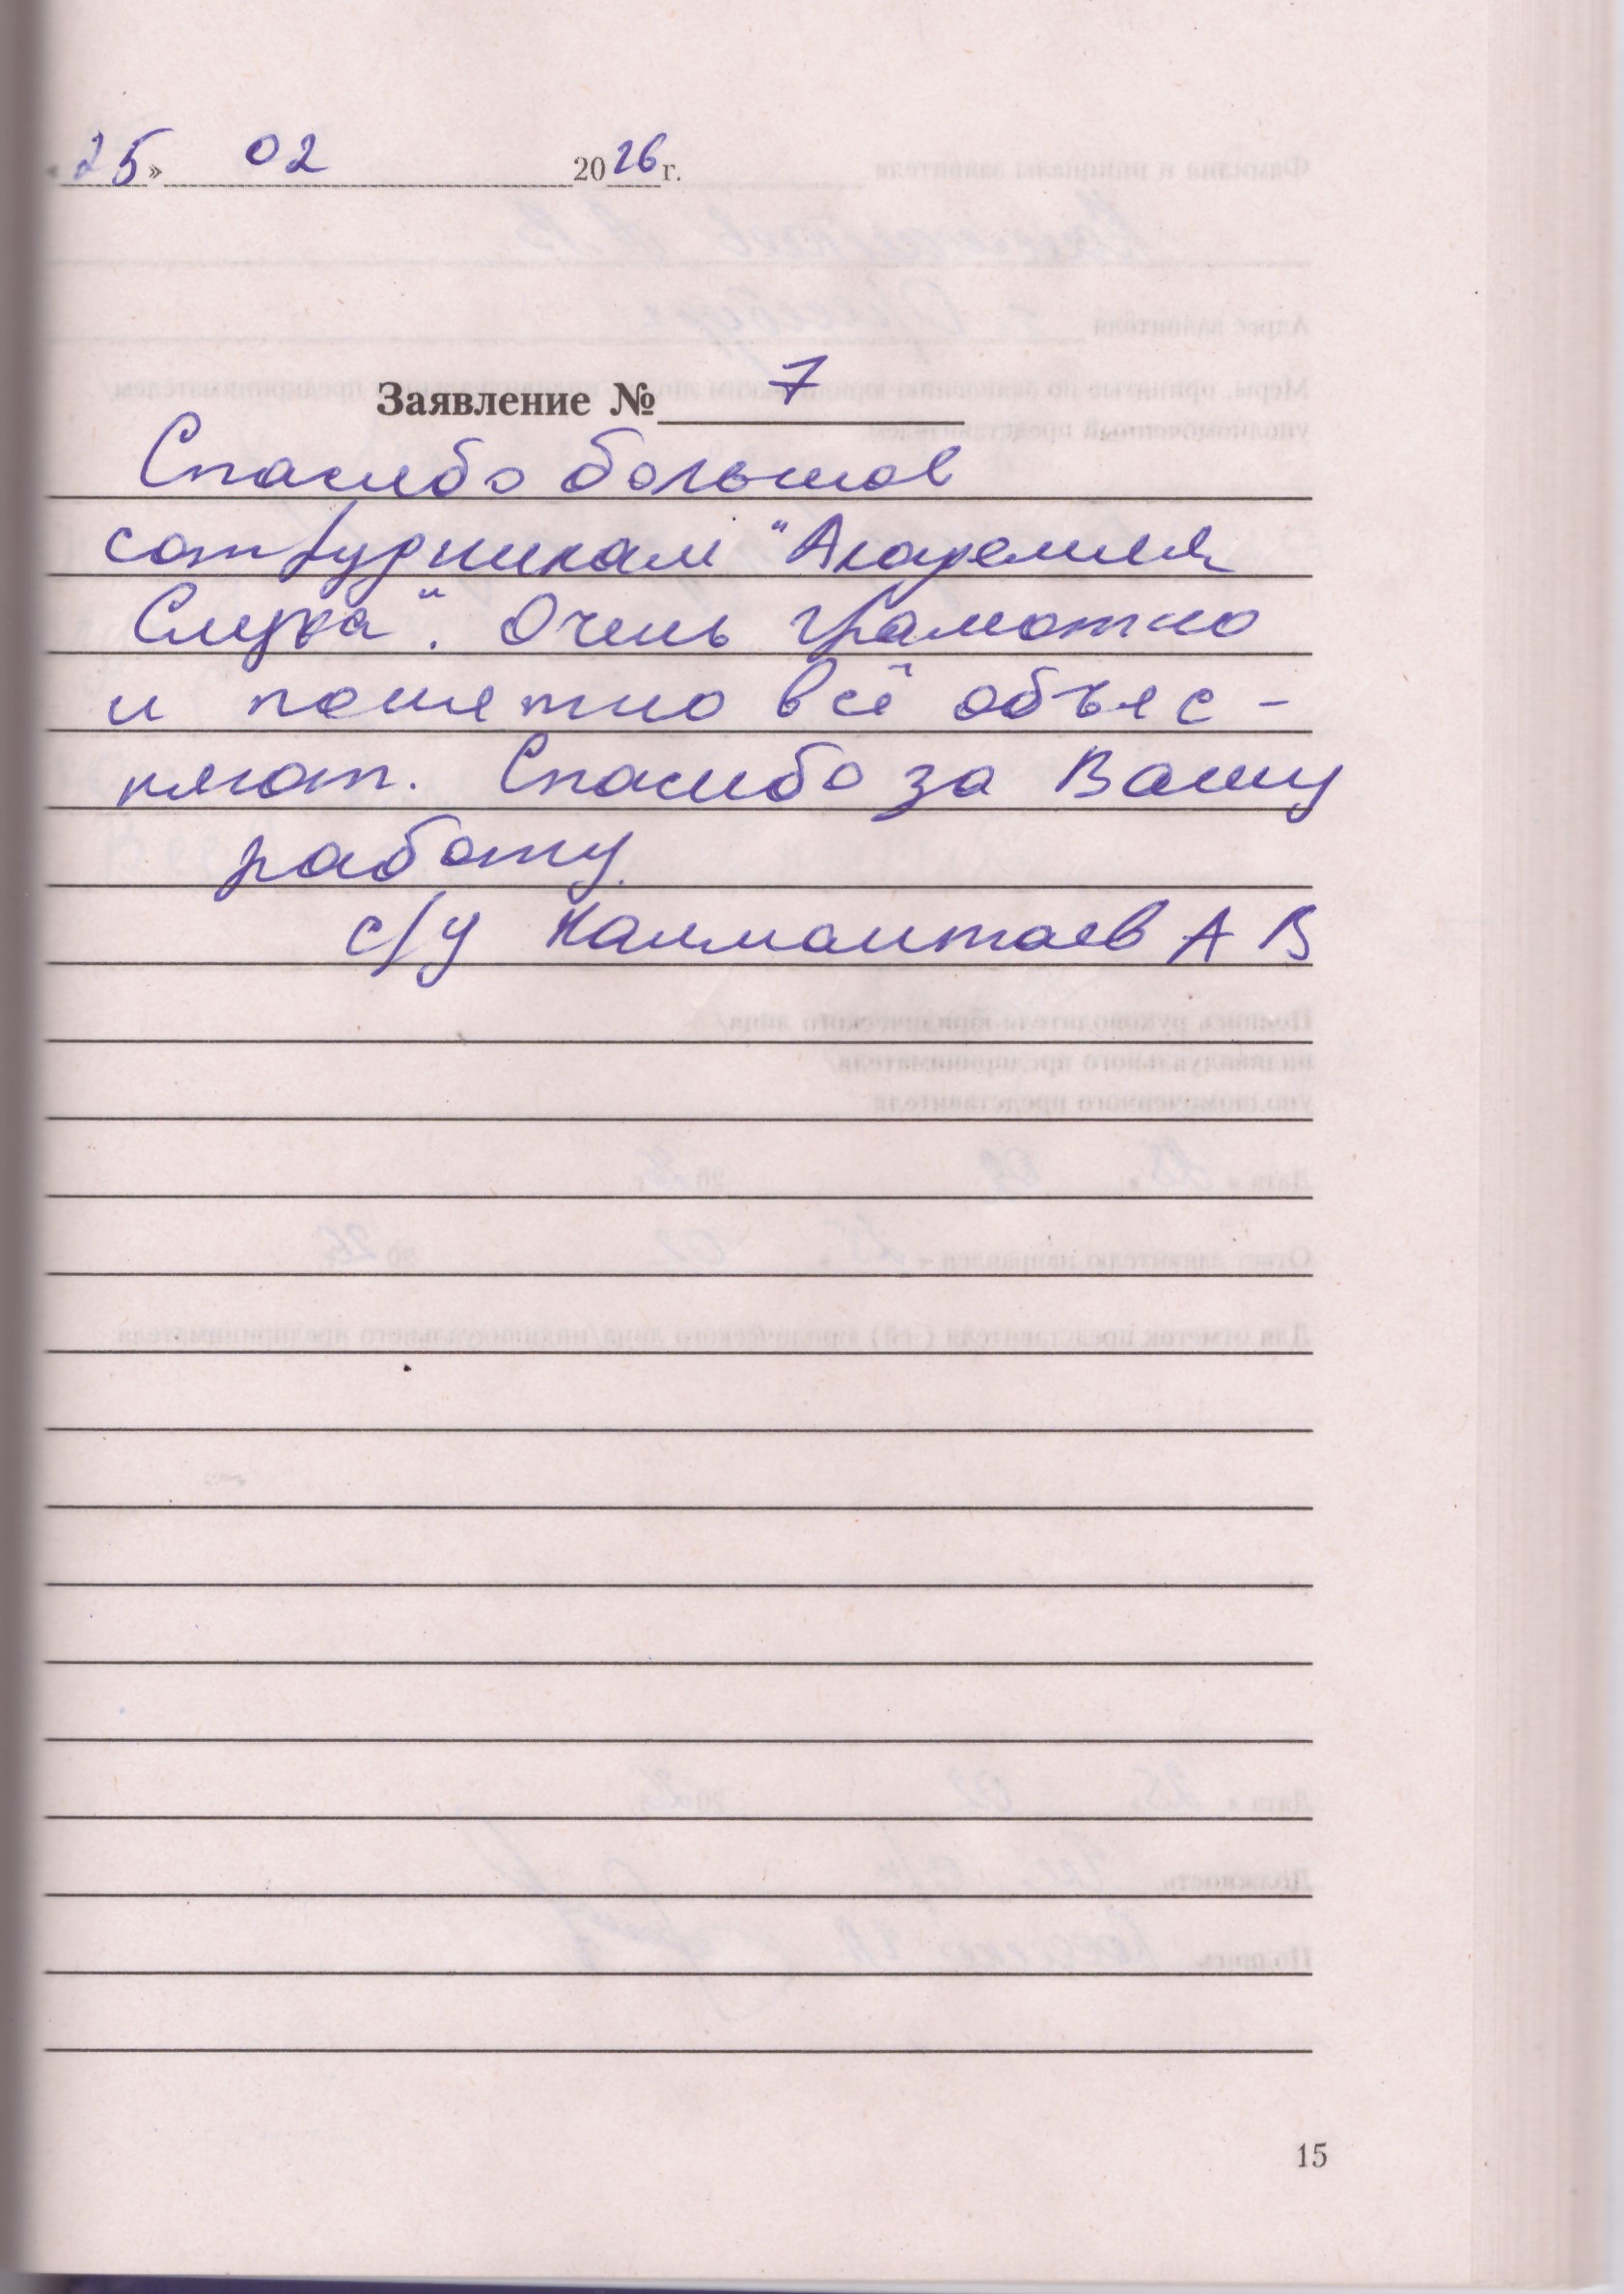 «25» 02 2026 г.
Заявление № 7
Спасибо большое
сотрудникам "Академия
Слуха". Очень грамотно
и понятно всё объяс-
няют. Спасибо за Вашу
работу.
с/у Калмантаев А В
15